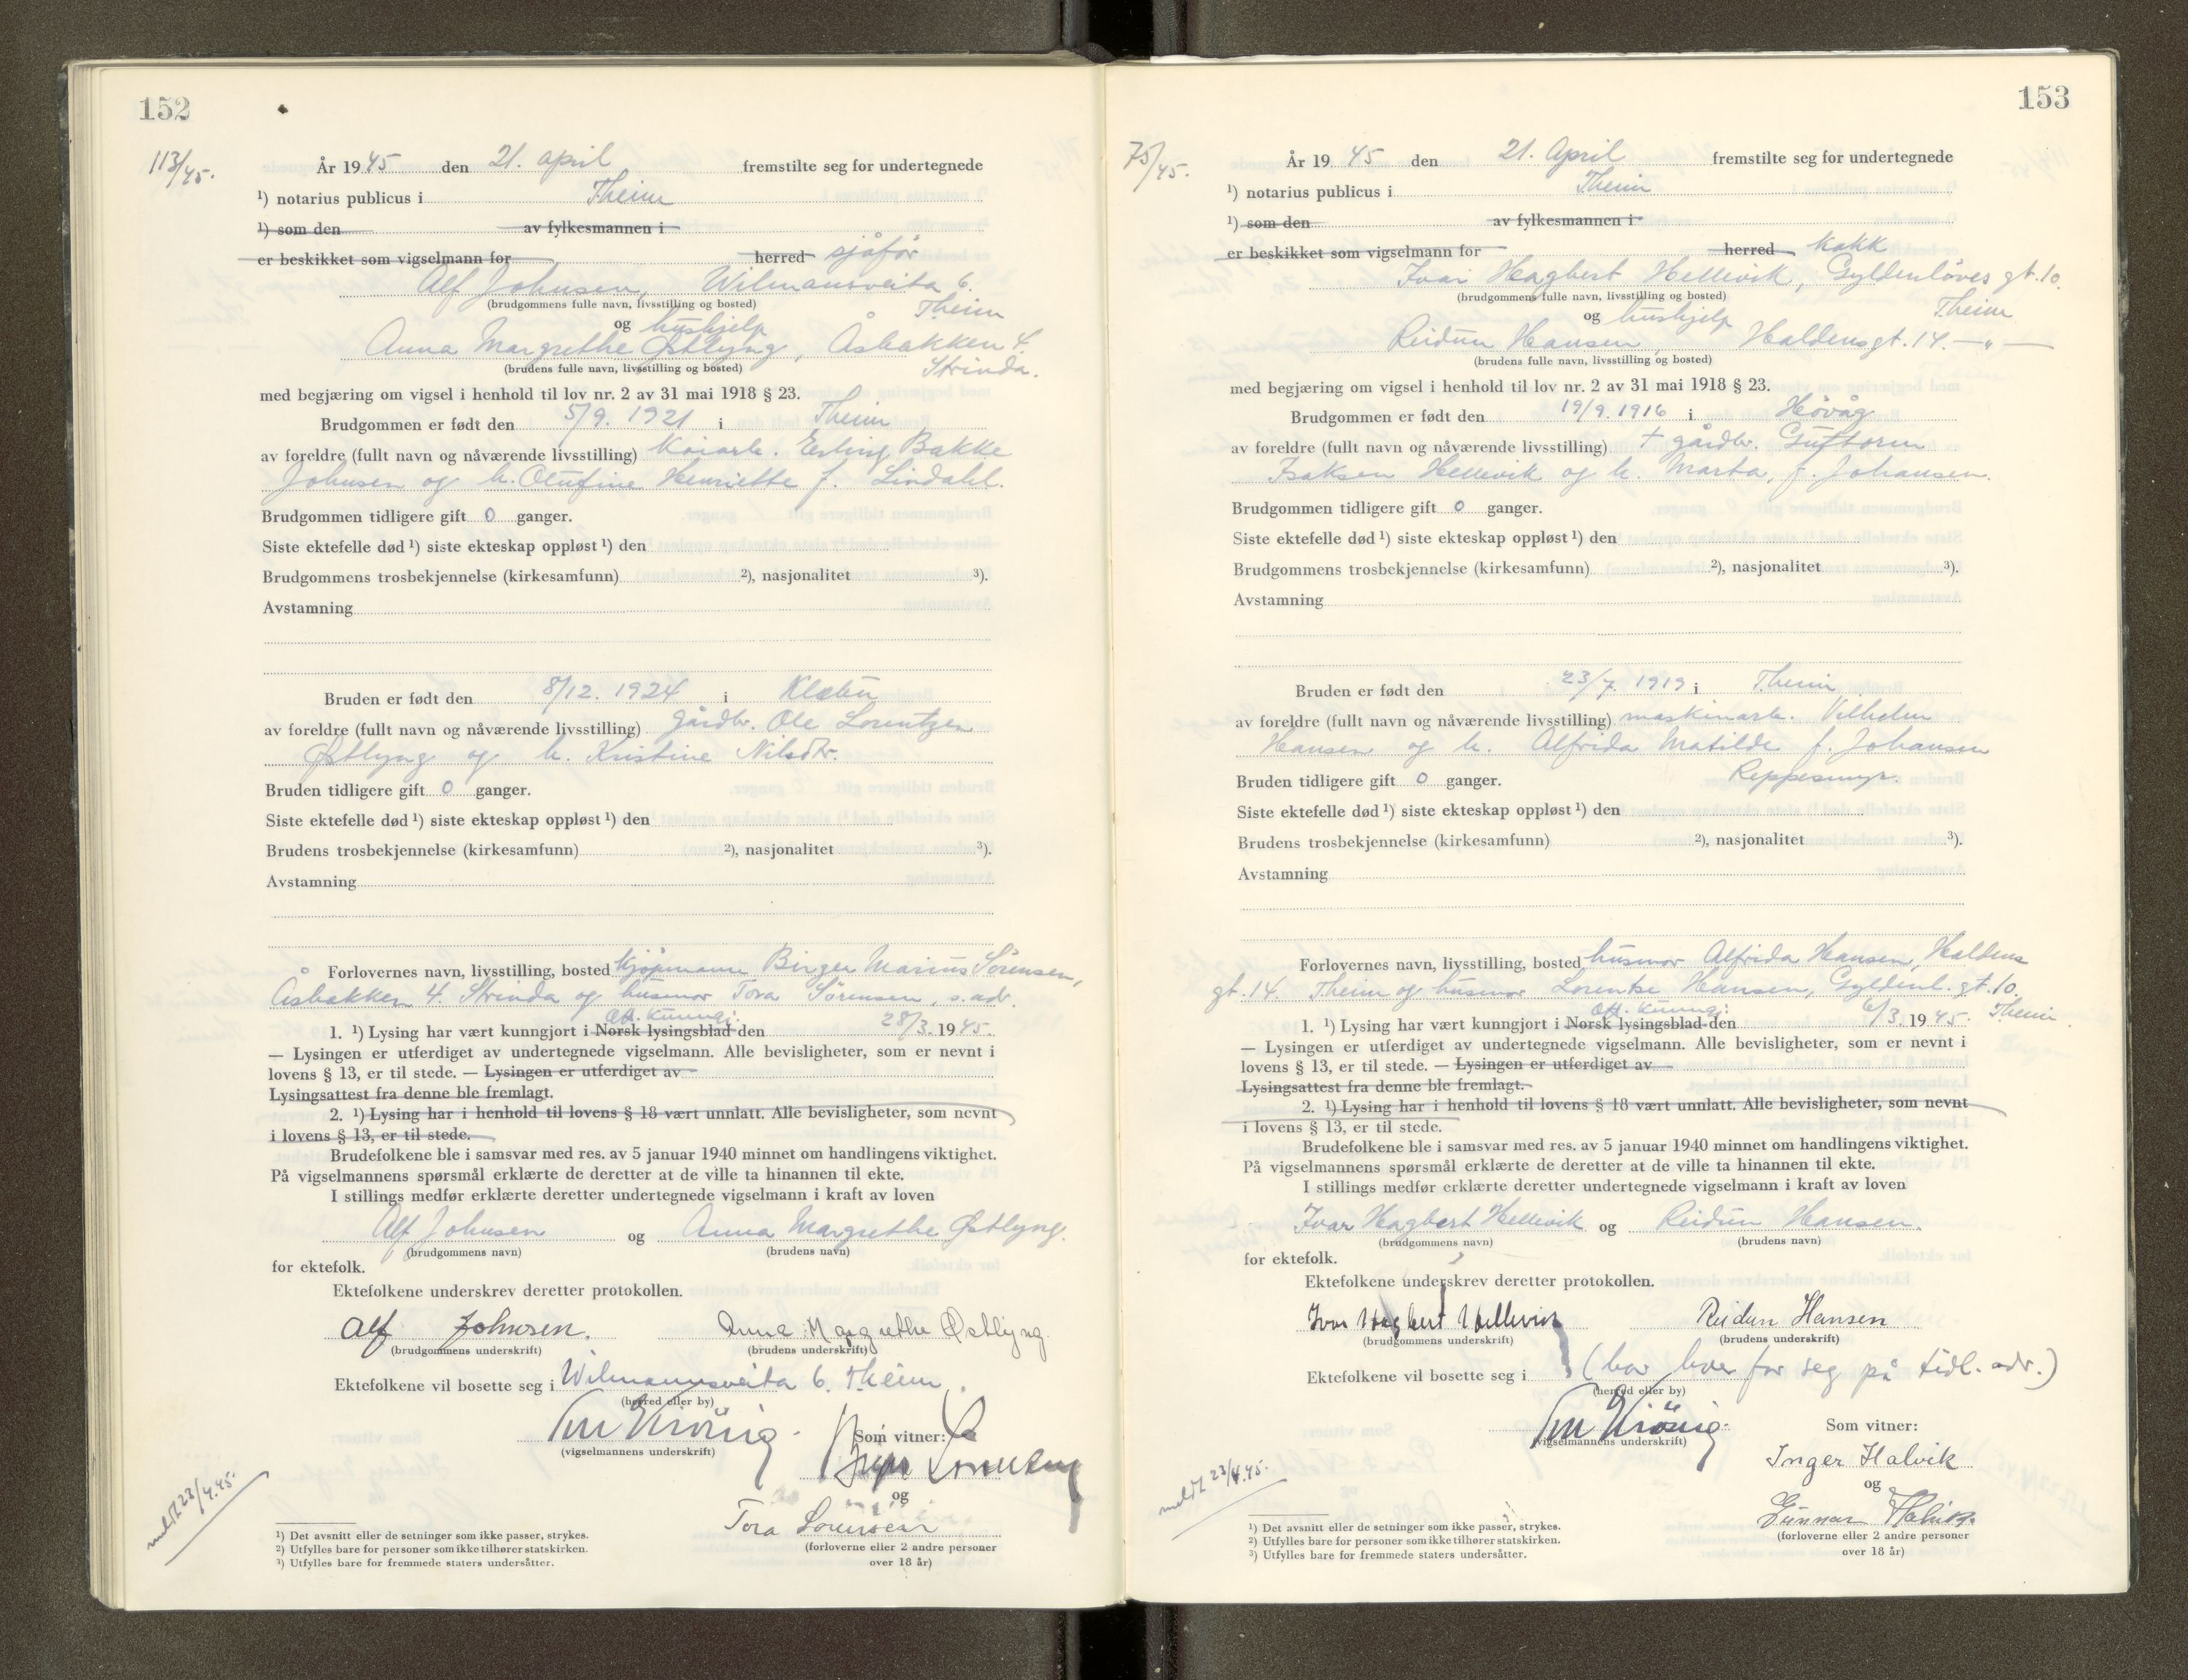 152
113/45.
År 1945 den 21. april fremstilte seg for undertegnede
¹) notarius publicus i Theim
¹) som den av fylkesmannen i
er beskikket som vigselmann for herred sjåfør
Alf Johnsen, Wilmansveita 6.
(brudgommens fulle navn, livsstilling og bosted) Theim
og hushjelp
Anna Margrethe Østlyng, Åsbakken 4.
(brudens fulle navn, livsstilling og bosted) Strinda.
med begjæring om vigsel i henhold til lov nr. 2 av 31 mai 1918 § 23.
Brudgommen er født den 5/9. 1921 i Theim
av foreldre (fullt navn og nåværende livsstilling) Kaiarb. Erling Bakke
Johnsen og h. Olufine Henriette f. Lindahl.
Brudgommen tidligere gift 0 ganger.
Siste ektefelle død ¹) siste ekteskap oppløst ¹) den
Brudgommens trosbekjennelse (kirkesamfunn) ²), nasjonalitet ³).
Avstamning
Bruden er født den 8/12. 1924 i Klæbu
av foreldre (fullt navn og nåværende livsstilling) gårdbr. Ole Lorentzen
Østlyng og h. Kristine Nilsdtr.
Bruden tidligere gift 0 ganger.
Siste ektefelle død ¹) siste ekteskap oppløst ¹) den
Brudens trosbekjennelse (kirkesamfunn) ²), nasjonalitet ³).
Avstamning
Forlovernes navn, livsstilling, bosted kjøpmann Birger Marius Sørensen,
Åsbakken 4. Strinda og husmor Tora Sørensen, s. adr.
off. kunngj.
1. ¹) Lysing har vært kunngjort i Norsk lysingsblad den 28/3. 1945.
— Lysingen er utferdiget av undertegnede vigselmann. Alle bevisligheter, som er nevnt i
lovens § 13, er til stede. — Lysingen er utferdiget av
Lysingsattest fra denne ble fremlagt.
2. ¹) Lysing har i henhold til lovens § 18 vært unnlatt. Alle bevisligheter, som nevnt
i lovens § 13, er til stede.
Brudefolkene ble i samsvar med res. av 5 januar 1940 minnet om handlingens viktighet.
På vigselmannens spørsmål erklærte de deretter at de ville ta hinannen til ekte.
I stillings medfør erklærte deretter undertegnede vigselmann i kraft av loven
Alf Johnsen og Anna Margrethe Østlyng.
(brudgommens navn) (brudens navn)
for ektefolk.
Ektefolkene underskrev deretter protokollen.
Alf Johnsen. Anna Margrethe Østlyng.
(brudgommens underskrift) (brudens underskrift)
Ektefolkene vil bosette seg i Wilmannsveita 6. Theim.
(herred eller by)
(vigselmannens underskrift) Som vitner:
og
Tora Sørensen
(forloverne eller 2 andre personer
over 18 år)
meldt 23/4.45.
¹) Det avsnitt eller de setninger som ikke passer, strykes.
²) Utfylles bare for personer som ikke tilhører statskirken.
³) Utfylles bare for fremmede staters undersåtter.
153
75/45.
År 1945 den 21. April fremstilte seg for undertegnede
¹) notarius publicus i Theim
¹) som den av fylkesmannen i
er beskikket som vigselmann for herred kokk
Ivar Hagbert Hellevik, Gyldenløves gt. 10.
(brudgommens fulle navn, livsstilling og bosted) Theim
og hushjelp
Reidun Hansen, Haldensgt. 14. — " —
(brudens fulle navn, livsstilling og bosted)
med begjæring om vigsel i henhold til lov nr. 2 av 31 mai 1918 § 23.
Brudgommen er født den 19/9. 1916 i Høvåg
av foreldre (fullt navn og nåværende livsstilling) + gårdbr. Guttorm
Isaksen Hellevik og h. Marta, f. Johansen.
Brudgommen tidligere gift 0 ganger.
Siste ektefelle død ¹) siste ekteskap oppløst ¹) den
Brudgommens trosbekjennelse (kirkesamfunn) ²), nasjonalitet ³).
Avstamning
Bruden er født den 23/7. 1919 i Theim
av foreldre (fullt navn og nåværende livsstilling) maskinarb. Vilhelm
Hansen og h. Alfrida Matilde f. Johansen
Reppesmyr.
Bruden tidligere gift 0 ganger.
Siste ektefelle død ¹) siste ekteskap oppløst ¹) den
Brudens trosbekjennelse (kirkesamfunn) ²), nasjonalitet ³).
Avstamning
Forlovernes navn, livsstilling, bosted husmor Alfrida Hansen, Haldens
gt. 14. Theim og husmor Lorentse Hansen, Gyldenl. gt. 10.
off. kunngj. Theim
1. ¹) Lysing har vært kunngjort i Norsk lysingsblad den 6/3. 1945.
— Lysingen er utferdiget av undertegnede vigselmann. Alle bevisligheter, som er nevnt i
lovens § 13, er til stede. — Lysingen er utferdiget av
Lysingsattest fra denne ble fremlagt.
2. ¹) Lysing har i henhold til lovens § 18 vært unnlatt. Alle bevisligheter, som nevnt
i lovens § 13, er til stede.
Brudefolkene ble i samsvar med res. av 5 januar 1940 minnet om handlingens viktighet.
På vigselmannens spørsmål erklærte de deretter at de ville ta hinannen til ekte.
I stillings medfør erklærte deretter undertegnede vigselmann i kraft av loven
Ivar Hagbert Hellevik og Reidun Hansen.
(brudgommens navn) (brudens navn)
for ektefolk.
Ektefolkene underskrev deretter protokollen.
Ivar Hagbert Hellevik Reidun Hansen
(brudgommens underskrift) (brudens underskrift)
Ektefolkene vil bosette seg i (bor hver for seg på tidl. adr.)
(herred eller by)
(vigselmannens underskrift) Som vitner:
Inger Halvik
og
Gunnar
(forloverne eller 2 andre personer
over 18 år)
meldt 23/4.45.
¹) Det avsnitt eller de setninger som ikke passer, strykes.
²) Utfylles bare for personer som ikke tilhører statskirken.
³) Utfylles bare for fremmede staters undersåtter.